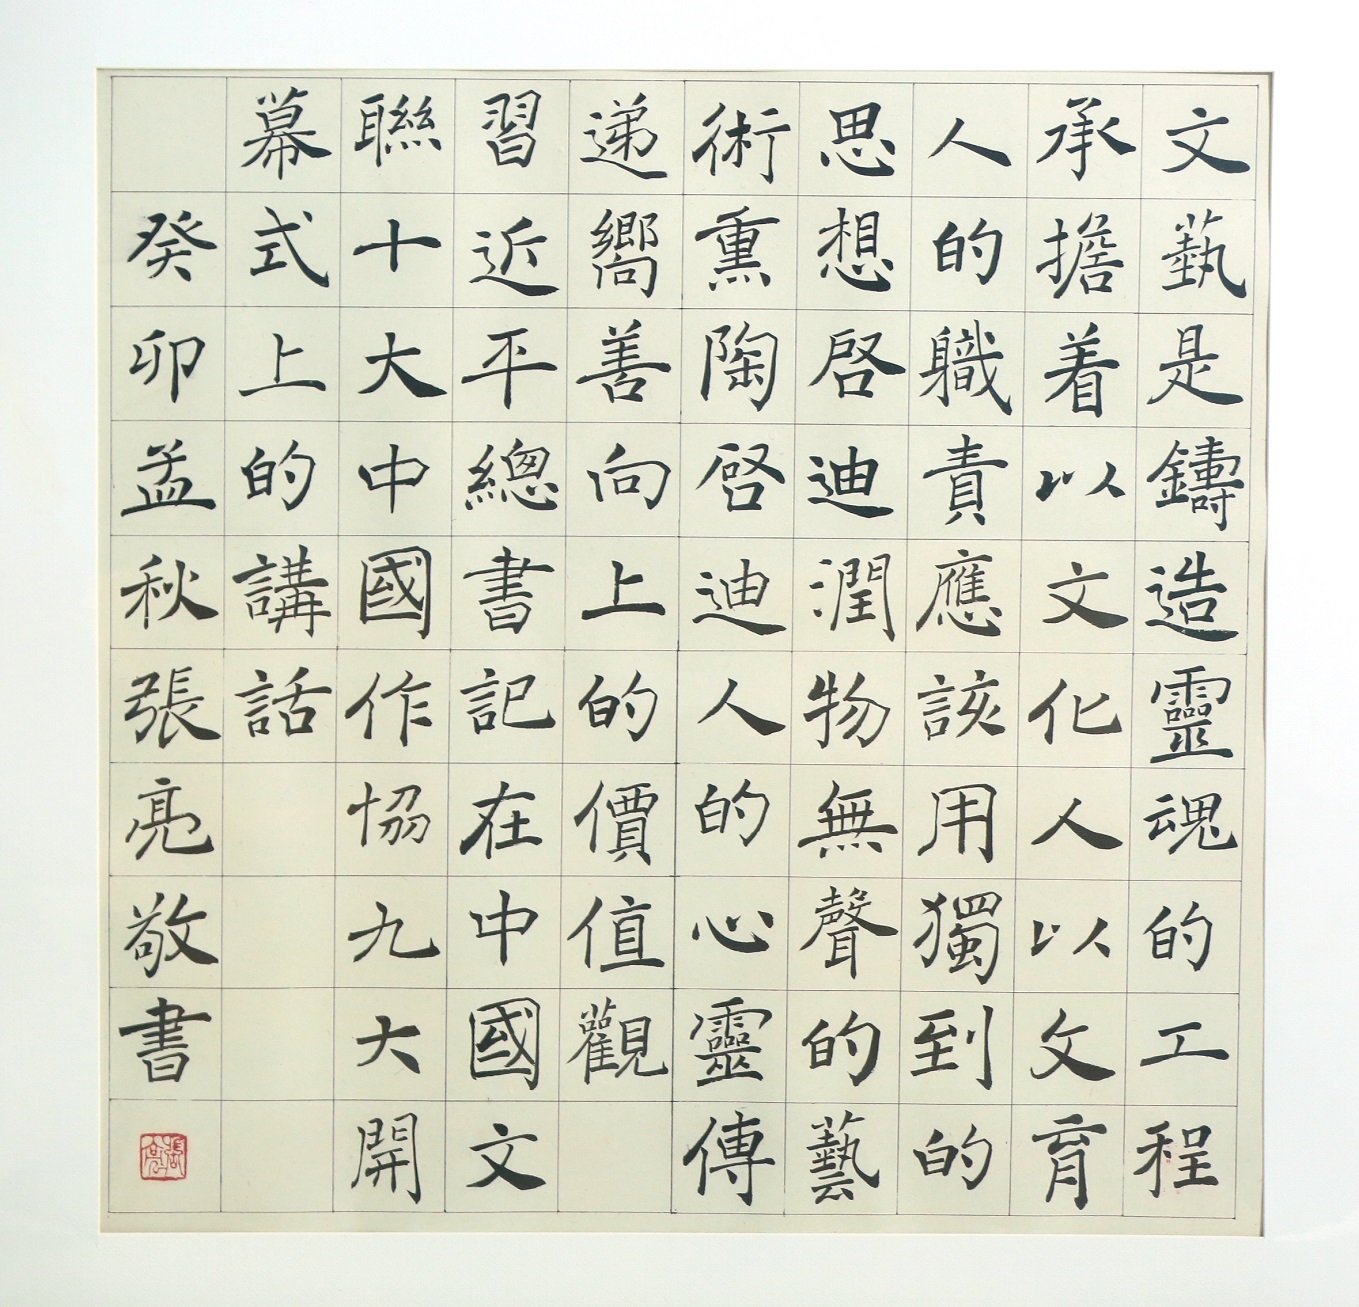 文藝是鑄造靈魂的工程
承擔着以文化人以文育
人的職責應該用獨到的
思想啓迪潤物無聲的藝
術熏陶啓迪人的心靈傳
递嚮善向上的價值觀
習近平總書記在中國文
聯十大中國作協九大開
幕式上的講話
癸卯孟秋張亮敬書
張亮